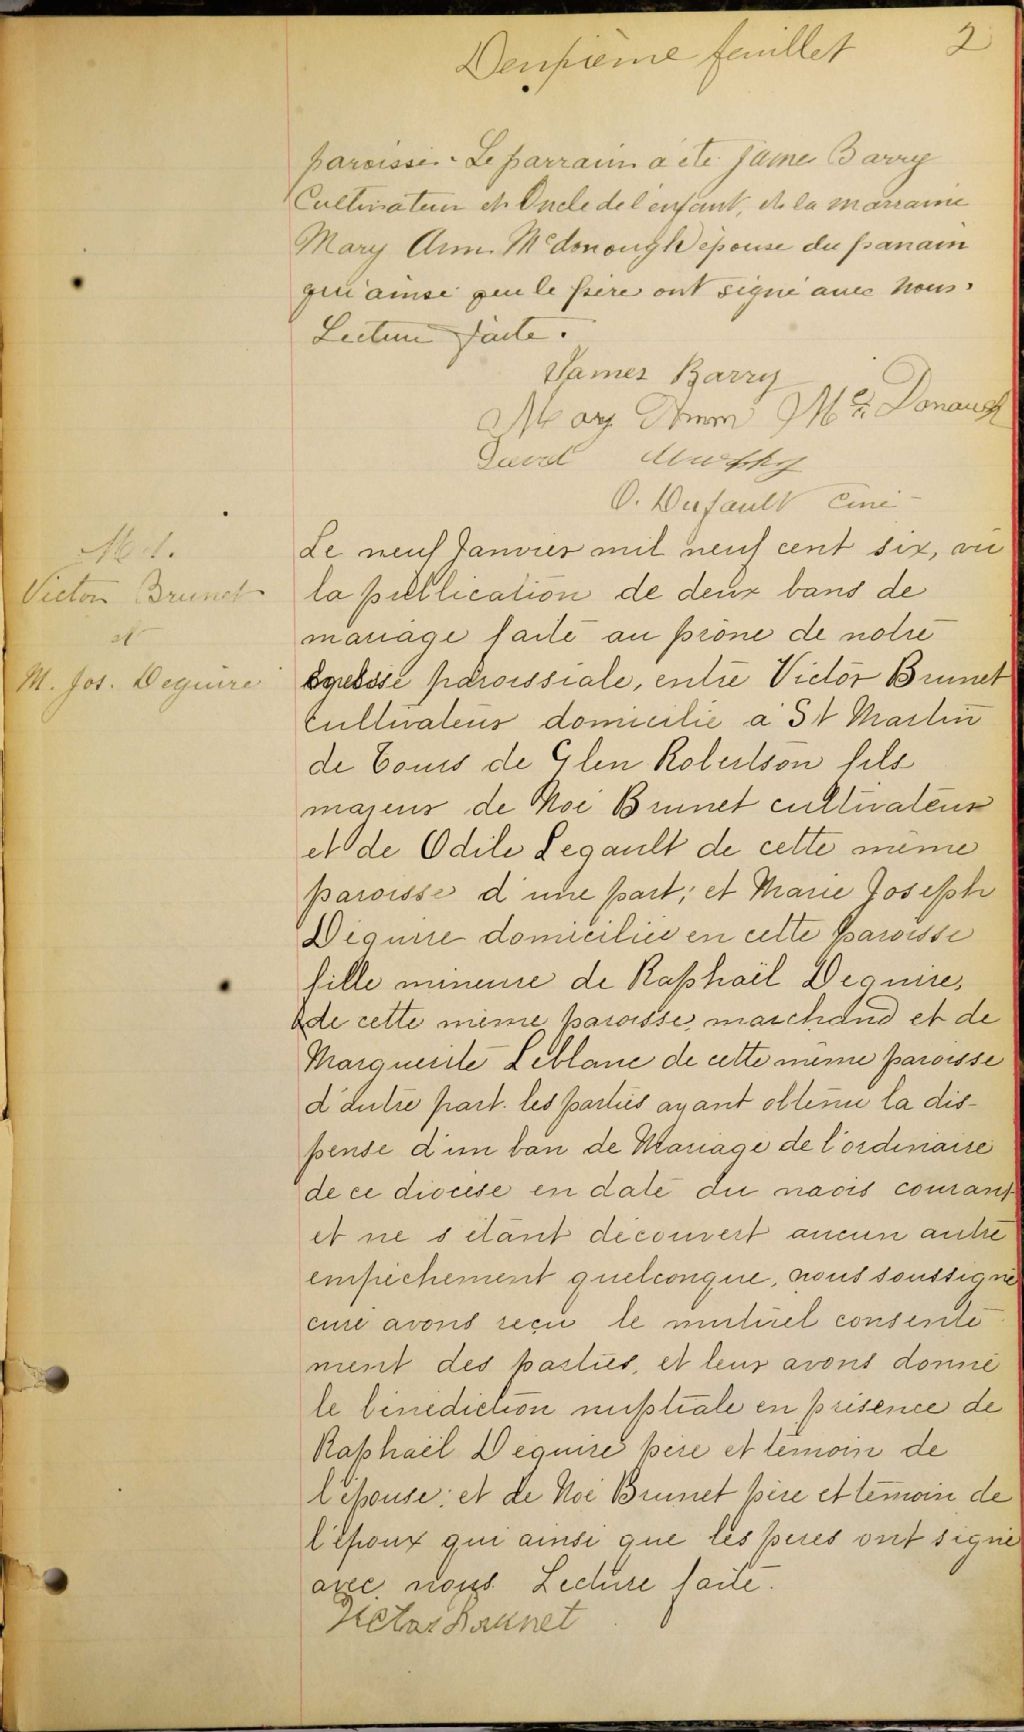 Deuxième feuillet 2
paroisse. Le parrain a été James Barry
Cultivateur et Oncle de l'enfant, et la marraine
Mary Ann McDonough épouse du parrain
qui ainsi que le père ont signé avec nous.
Lecture faite.
James Barry
Mary Ann McDonough
David Murphy
O. Dufault Curé
M. 1.
Victor Brunet
et
M. Jos. Deguire
Le neuf Janvier mil neuf cent six, vu
la publication de deux bans de
mariage faite au prône de notre
église paroissiale, entre Victor Brunet
cultivateur domicilié à St Martin
de Tours de Glen Robertson fils
majeur de Noé Brunet cultivateur
et de Odile Legault de cette même
paroisse d'une part; et Marie Joseph
Déguire domiciliée en cette paroisse
fille mineure de Raphaël Deguire,
de cette même paroisse, marchand et de
Marguerite Leblanc de cette même paroisse
d'autre part. les parties ayant obtenu la dis-
pense d'un ban de Mariage de l'ordinaire
de ce diocèse en date du mois courant
et ne s'étant découvert aucun autre
empêchement quelconque, nous soussigné
curé avons reçu le mutuel consente
ment des parties, et leur avons donné
le bénédiction nuptiale en présence de
Raphaël Déguire père et témoin de
l'épouse; et de Noé Brunet père et témoin de
l'époux qui ainsi que les peres ont signé
avec nous. Lecture faite.
Victor Brunet